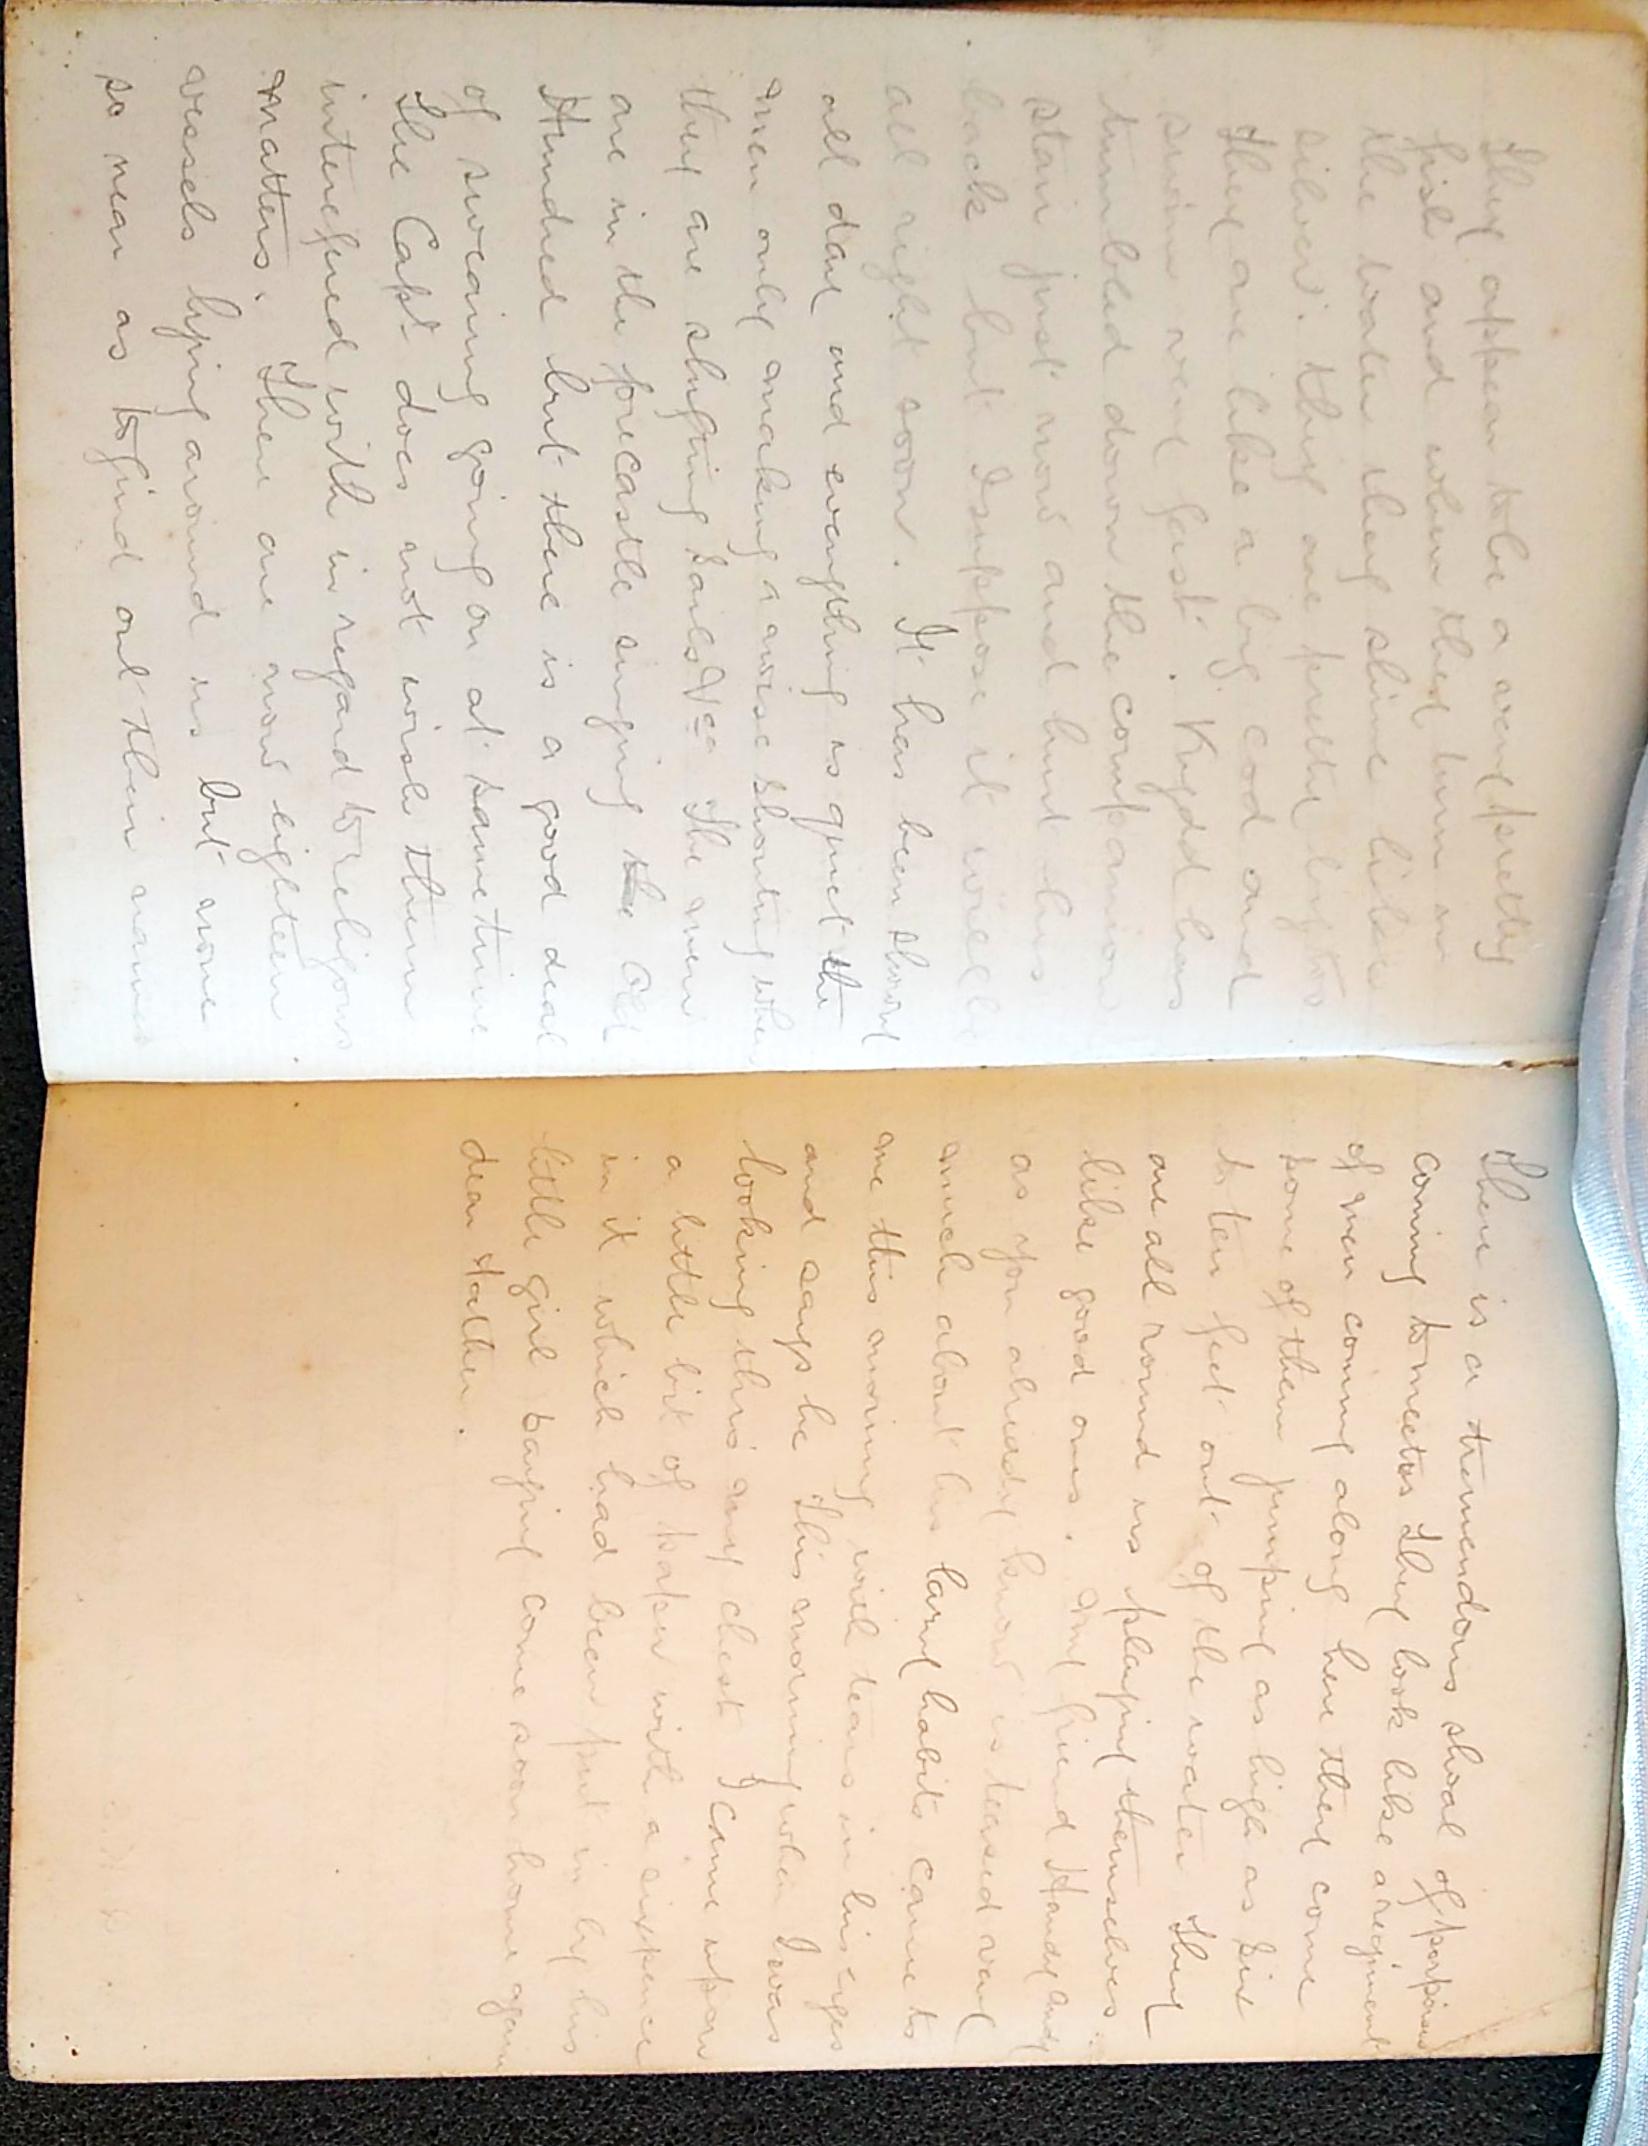 They appear to be a very pretty
fish and when they turn in
the water they shine like
silver. they are pretty big too
They are like a big cod and
swim very fast. Kydd has
tumbled down the companion
stair just now and hurt his
back but I suppose it will be
all right soon. It has been showy
all day and everything is quiet the
men only making a noise shouting when
they are shifting sails &ca The men
are in the forecastle singing the Old
Hundred but there is a good deal
of swearing going on at same time
The Capt does not wish them
interfered with in regard to religious
matters. There are now eighteen
vessels lying around us but none
so near as to find out their names
There is a tremendous shoal of porpoises
coming to meet us They look like a regiment
of men coming along here they come
some of them jumping as high as six
to ten feet out of the water They
are all round us playing themselves
like good ones. My friend Handy andy
as you already know is teased very
much about his lazy habits came to
me this morning with tears in his eyes
and says he This morning when I was
looking thro' my chest I came upon
a little bit of paper with a sixpence
in it which had been put in by his
little girl saying come soon home again
dear Father.